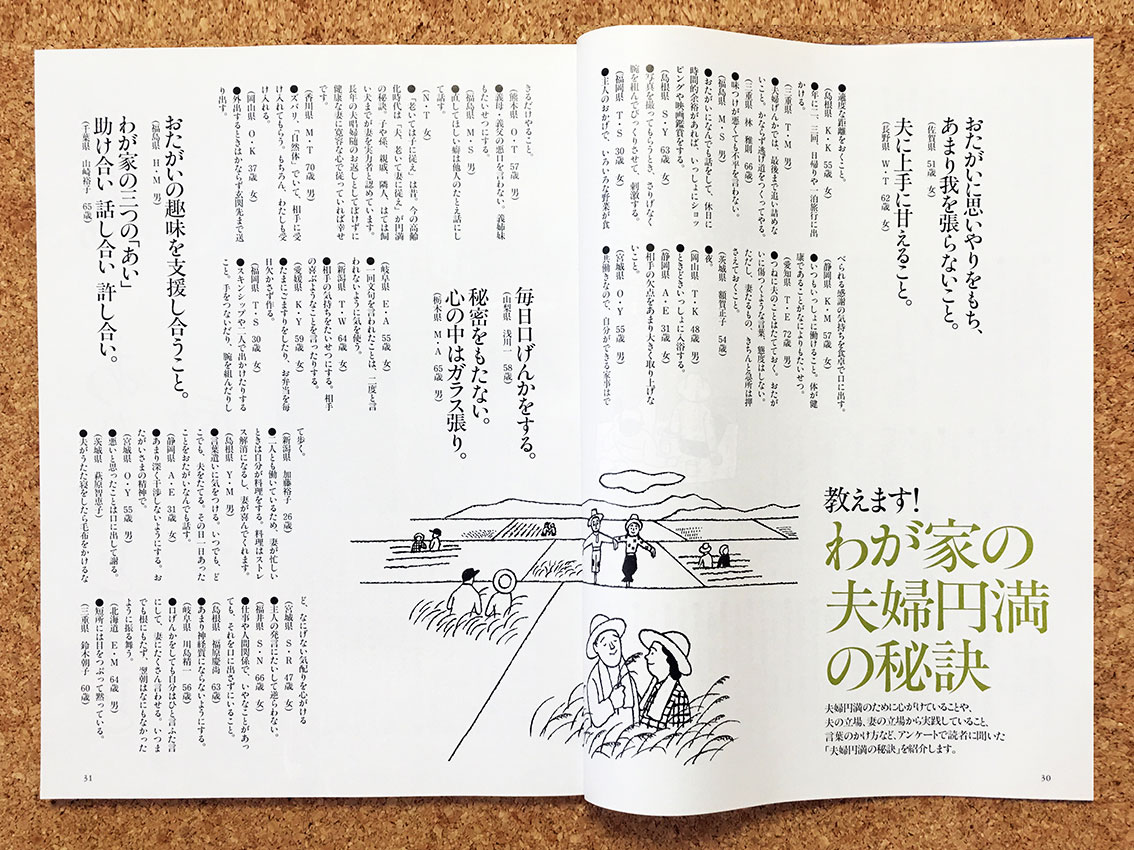 教えます！
わが家の
夫婦円満
の秘訣
夫婦円満のために心がけていることや、
夫の立場、妻の立場から実践していること、
言葉のかけ方など、アンケートで読者に聞いた
「夫婦円満の秘訣」を紹介します。
おたがいに思いやりをもち、
あまり我を張らないこと。
(佐賀県 51歳 女)
夫に上手に甘えること。
(長野県 W・T 62歳 女)
●適度な距離をおくこと。
(島根県 K・K 55歳 男)
●年に二、三回、日帰りや一泊旅行に出
かける。
(三重県 T・M 男)
●夫婦げんかでは、最後まで追い詰めな
いこと。かならず逃げ道をつくってやる。
(三重県 林 雅則 66歳)
●味つけが悪くても不平を言わない。
(福島県 M・S 男)
●おたがいになんでも話をして、休日に
時間的余裕があれば、いっしょにショッ
ピングや映画鑑賞をする。
(島根県 S・Y 63歳 男)
●写真を撮ってもらうとき、さりげなく
腕を組んでびっくりさせて、刺激する。
(福岡県 T・S 30歳 女)
●主人のおかげで、いろいろな野菜が食
べられる感謝の気持ちを食卓で口に出す。
(静岡県 K・M 57歳 女)
●いつもいっしょに働けること。体が健
康であることがなによりもたいせつ。
(愛知県 T・E 72歳 男)
●つねに夫のことはたてておく。おたが
いに傷つくような言葉、態度はしない。
ただし、妻たるもの、きちんと急所は押
さえておくこと。
(茨城県 額賀正子 54歳)
●夜。
(岡山県 T・K 48歳 男)
●ときどきいっしょに入浴する。
(静岡県 A・E 31歳 女)
●相手の欠点をあまり大きく取り上げな
いこと。
(宮城県 O・Y 55歳 男)
●共働きなので、自分ができる家事はで
30
きるだけやること。
(熊本県 O・T 57歳 男)
●義母・義父の悪口を言わない。義姉妹
もたいせつにする。
(福島県 M・S 男)
●直してほしい癖は他人のたとえ話にし
て話す。
(N・T 女)
●「老いては子に従え」は昔。今の高齢
化時代は「夫、老いて妻に従え」が円満
の秘訣。子や孫、親戚、隣人、はては飼
い犬までが妻を実力者と認めています。
長年の夫唱婦随のお返しとしてぼけずに
健康な妻に寛容な心で従っていれば幸せ
です。
(香川県 M・T 70歳 男)
●ズバリ、「自然体」でいて、相手に受
け入れてもらう。もちろん、わたしも受
け入れる。
(岡山県 O・K 37歳 女)
●外出するときはかならず玄関先まで送
り出す。
おたがいの趣味を支援し合うこと。
(福島県 H・M 男)
わが家の三つの「あい」
助け合い 話し合い 許し合い。
(千葉県 山崎裕子 65歳)
毎日口げんかをする。
(山梨県 浅川一 58歳)
秘密をもたない。
心の中はガラス張り。
(栃木県 M・A 65歳 男)
(岐阜県 E・A 55歳 女)
●一回文句を言われたことは、二度と言
われないように気を使う。
(新潟県 T・W 64歳 女)
●相手の気持ちをたいせつにする。相手
の喜ぶようなことを言ったりする。
(愛媛県 K・Y 59歳 女)
●たまにごますりをしたり、お弁当を毎
日欠かさず作る。
(福岡県 T・S 30歳 女)
●スキンシップや二人で出かけたりする
こと。手をつないだり、腕を組んだりし
て歩く。
(新潟県 加藤裕子 26歳)
●二人とも働いているため、妻が忙しい
ときは自分が料理をする。料理はストレ
ス解消になるし、妻が喜んでくれます。
(島根県 Y・M 男)
●言葉遣いに気をつける。いつでも、ど
こでも、夫をたてる。その日一日あった
ことをおたがいなんでも話す。
(静岡県 A・E 31歳 女)
●あまり深く干渉しないようにする。お
たがいさまの精神で。
(宮城県 O・Y 55歳 男)
●悪いと思ったことは口に出して謝る。
(茨城県 萩原智恵子)
●夫がうたた寝をしたら毛布をかけるな
ど、なにげない気配りを心がける
(宮城県 S・R 47歳 女)
●主人の発言にたいして逆らわない。
(福井県 S・N 66歳 女)
●仕事や人間関係で、いやなことがあっ
ても、それを口に出さずにいること。
(島根県 福原慶尚 63歳)
●あまり神経質にならないようにする。
(岐阜県 川島精一 56歳)
●口げんかをしても自分はひと言ふた言
にして、妻にたくさん言わせる。いつま
でも根にもたず、翌朝はなにもなかった
ように振る舞う。
(北海道 E・M 64歳 男)
●短所には目をつぶって黙っている。
(三重県 鈴木朝子 60歳)
31